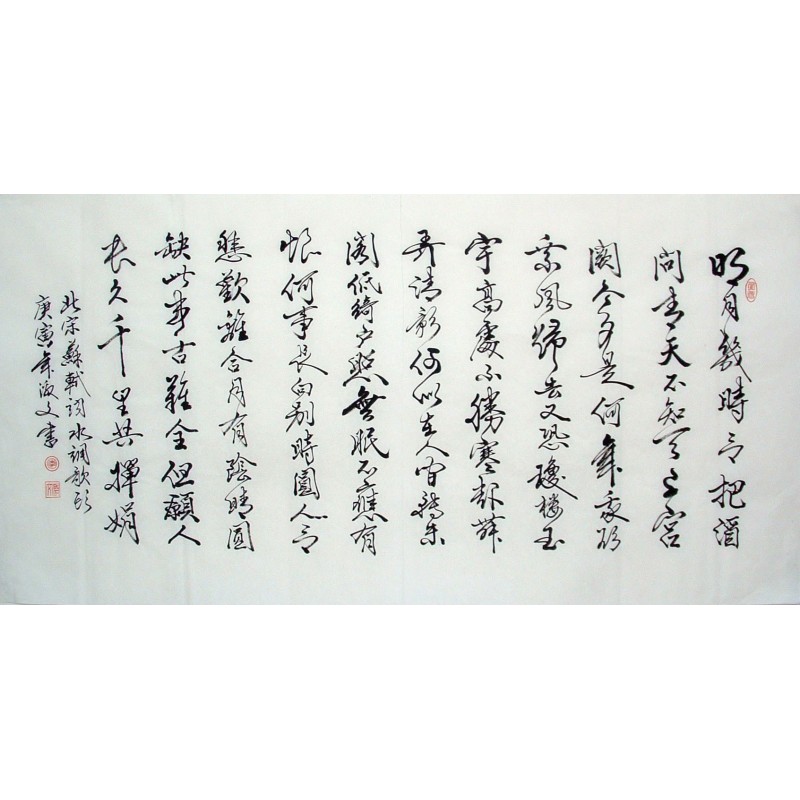 明月幾時有把酒
問青天不知天上宮
闕今夕是何年我欲
乘風歸去又恐瓊樓玉
宇高處不勝寒起舞
弄清影何似在人間轉朱
閣低綺戶照無眠不應有
恨何事長向別時圓人有
悲歡離合月有陰晴圓
缺此事古難全但願人
長久千里共嬋娟
北宋蘇軾詞水調歌頭
庚寅年淑文書